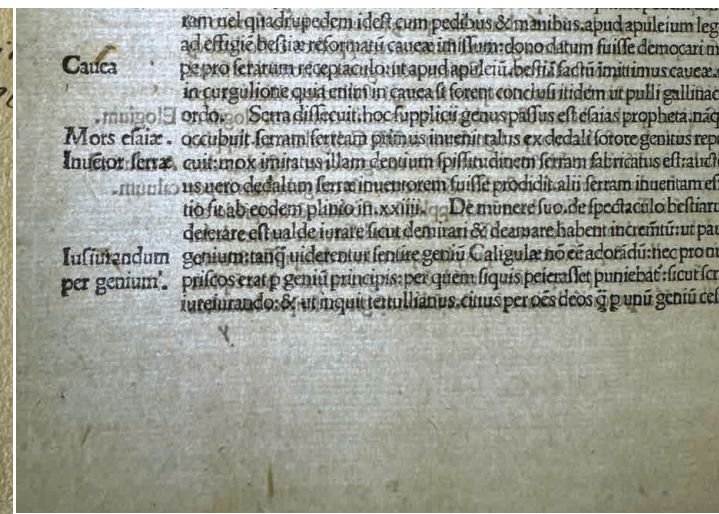 ram uel quadrupedem idest cum pedibus & manibus. apud apuleium leg
ad effigiē bestiæ reformatū caueæ imissum: dono datum fuisse democari m
Cauea
pe pro ferarum receptaculo: ut apud apuleiū. bestiā factū imittimus caueæ.
in curgulione quia enim in cauea si forent conclusi itidem ut pulli gallinac
ordo. Serra dissecuit. hoc supplicii genus passus est esaias propheta. nāq
Mors esaiæ.
occubuit. serram ferream primus inuenit talus ex dedali sorore genitus rep
Inuētor serræ
cuit: mox imitatus illam dentium spissitudinem serram fabricatus est: aucto
us uero dedalum serræ inuentorem fuisse prodidit. alii serram inuentam es
tio sit ab eodem plinio in. xxiiii. De munere suo. de spectaculo bestiaru
deierare est ualde iurare sicut demirari & deamare habent incremētū: ut pau
Iusiurandum
genium: tanq̄ uiderentur sentire geniū Caligulæ nō eē adorādū: nec pro nu
per genium.
priscos erat p geniū principis: per quem siquis peierasset puniebat: sicut scr
iureiurando: & ut inquit tertullianus. citius per oēs deos q̄ p unū geniū ces